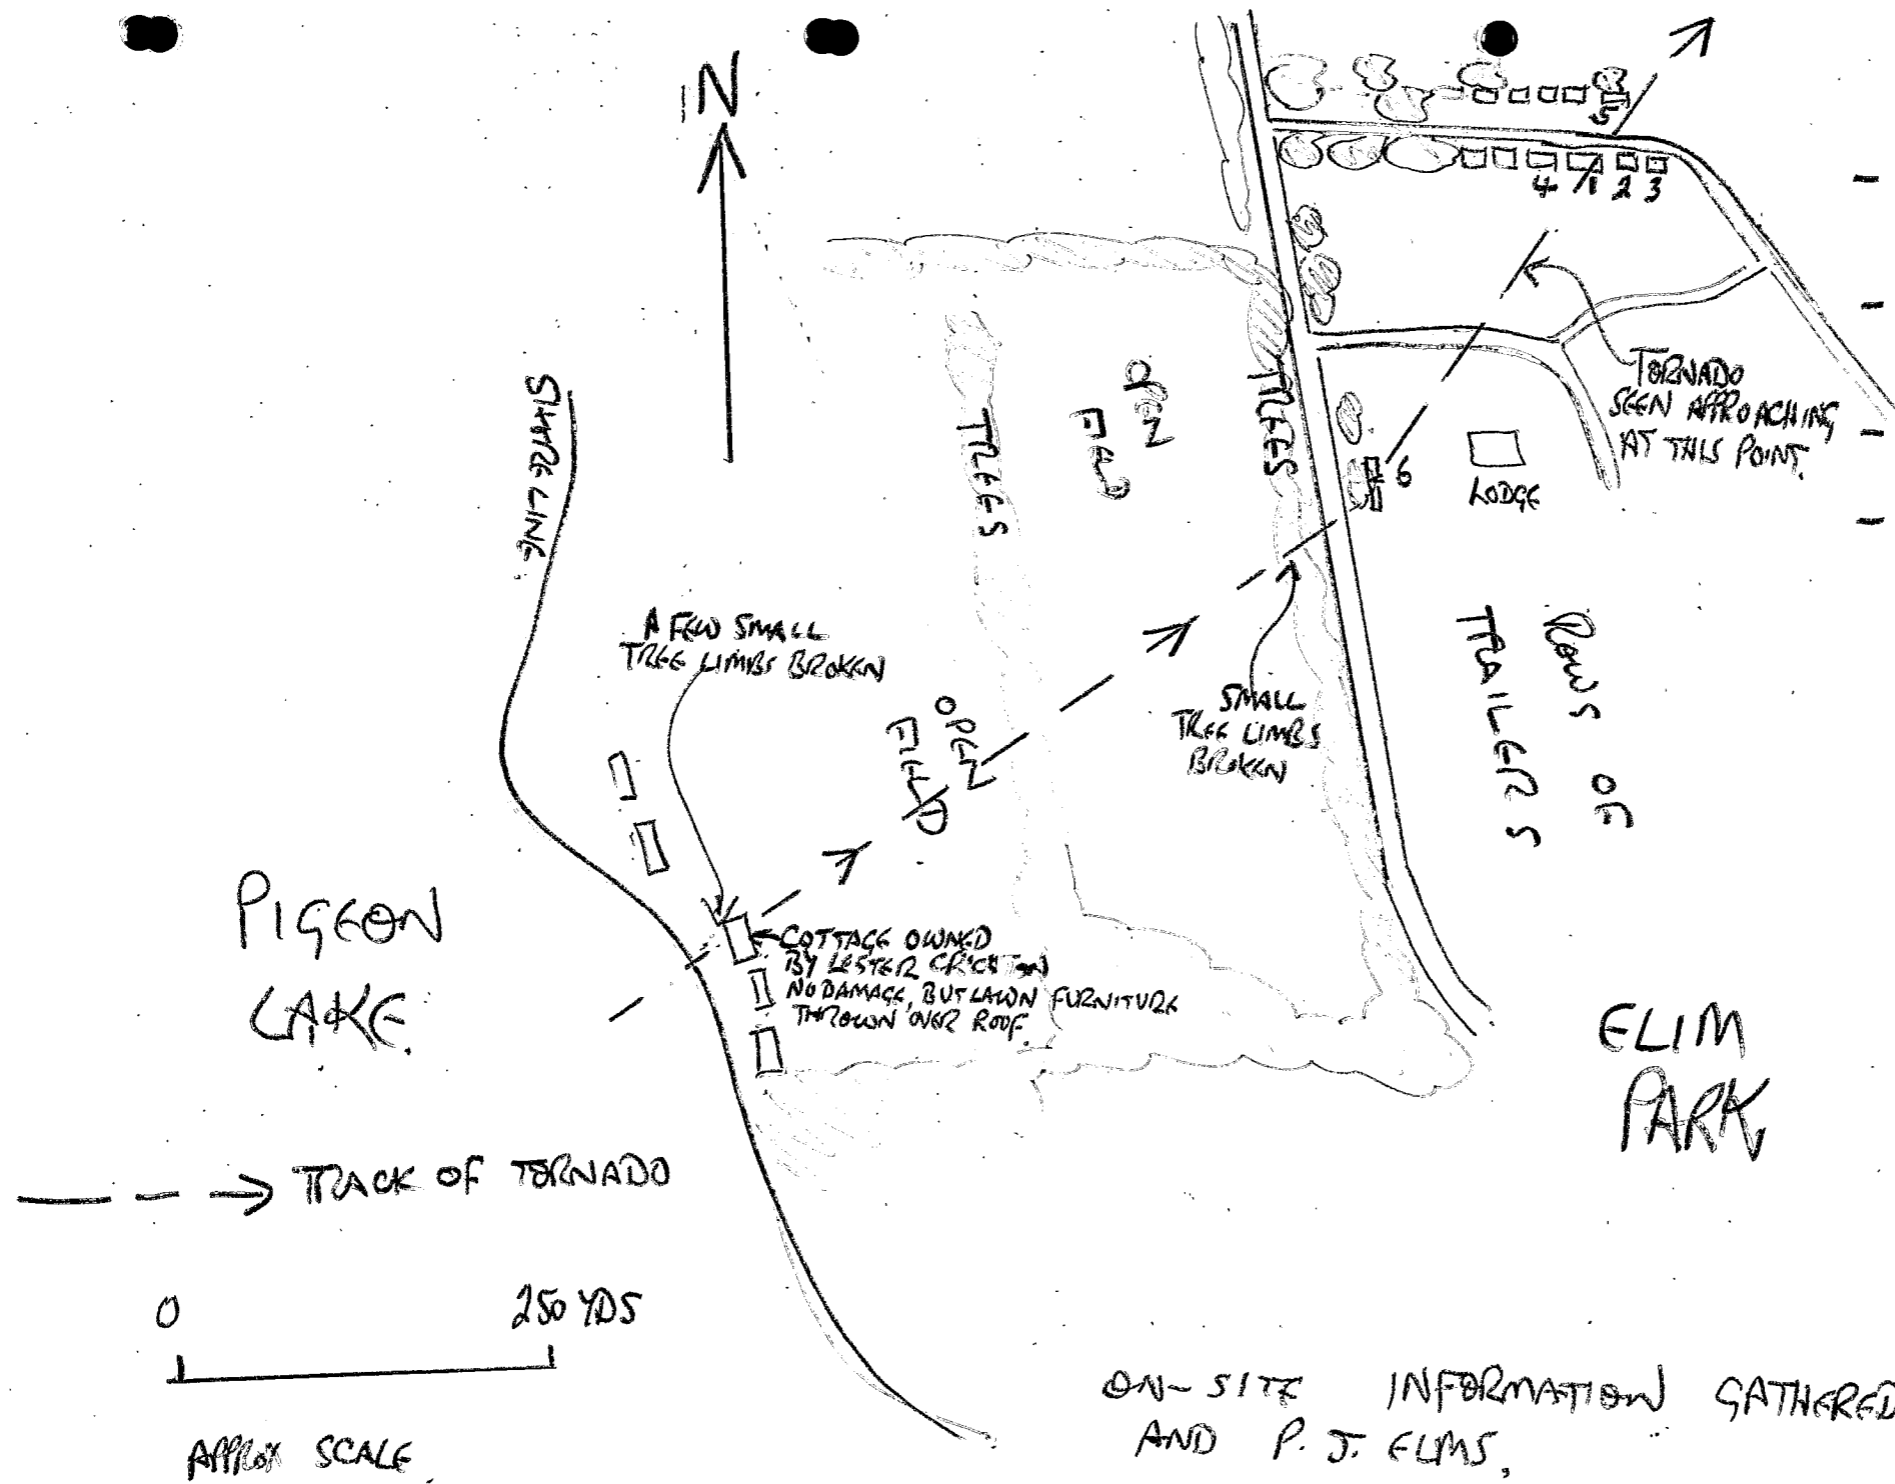 N
5
4 1 2 3
TORNADO
SEEN APPROACHING
AT THIS POINT.
SHORE LINE
TREES
OPEN
FIELD
TREES
6
LODGE
A FEW SMALL
TREE LIMBS BROKEN
SMALL
TREE LIMBS
BROKEN
ROWS OF
TRAILERS
OPEN
FIELD
PIGEON
LAKE.
COTTAGE OWNED
BY LESTER
NO DAMAGE, BUT LAWN FURNITURE
THROWN OVER ROOF.
ELIM
PARK
TRACK OF TORNADO
0 250 YDS
APPROX SCALE.
ON-SITE INFORMATION GATHERED
AND P. J. ELMS,